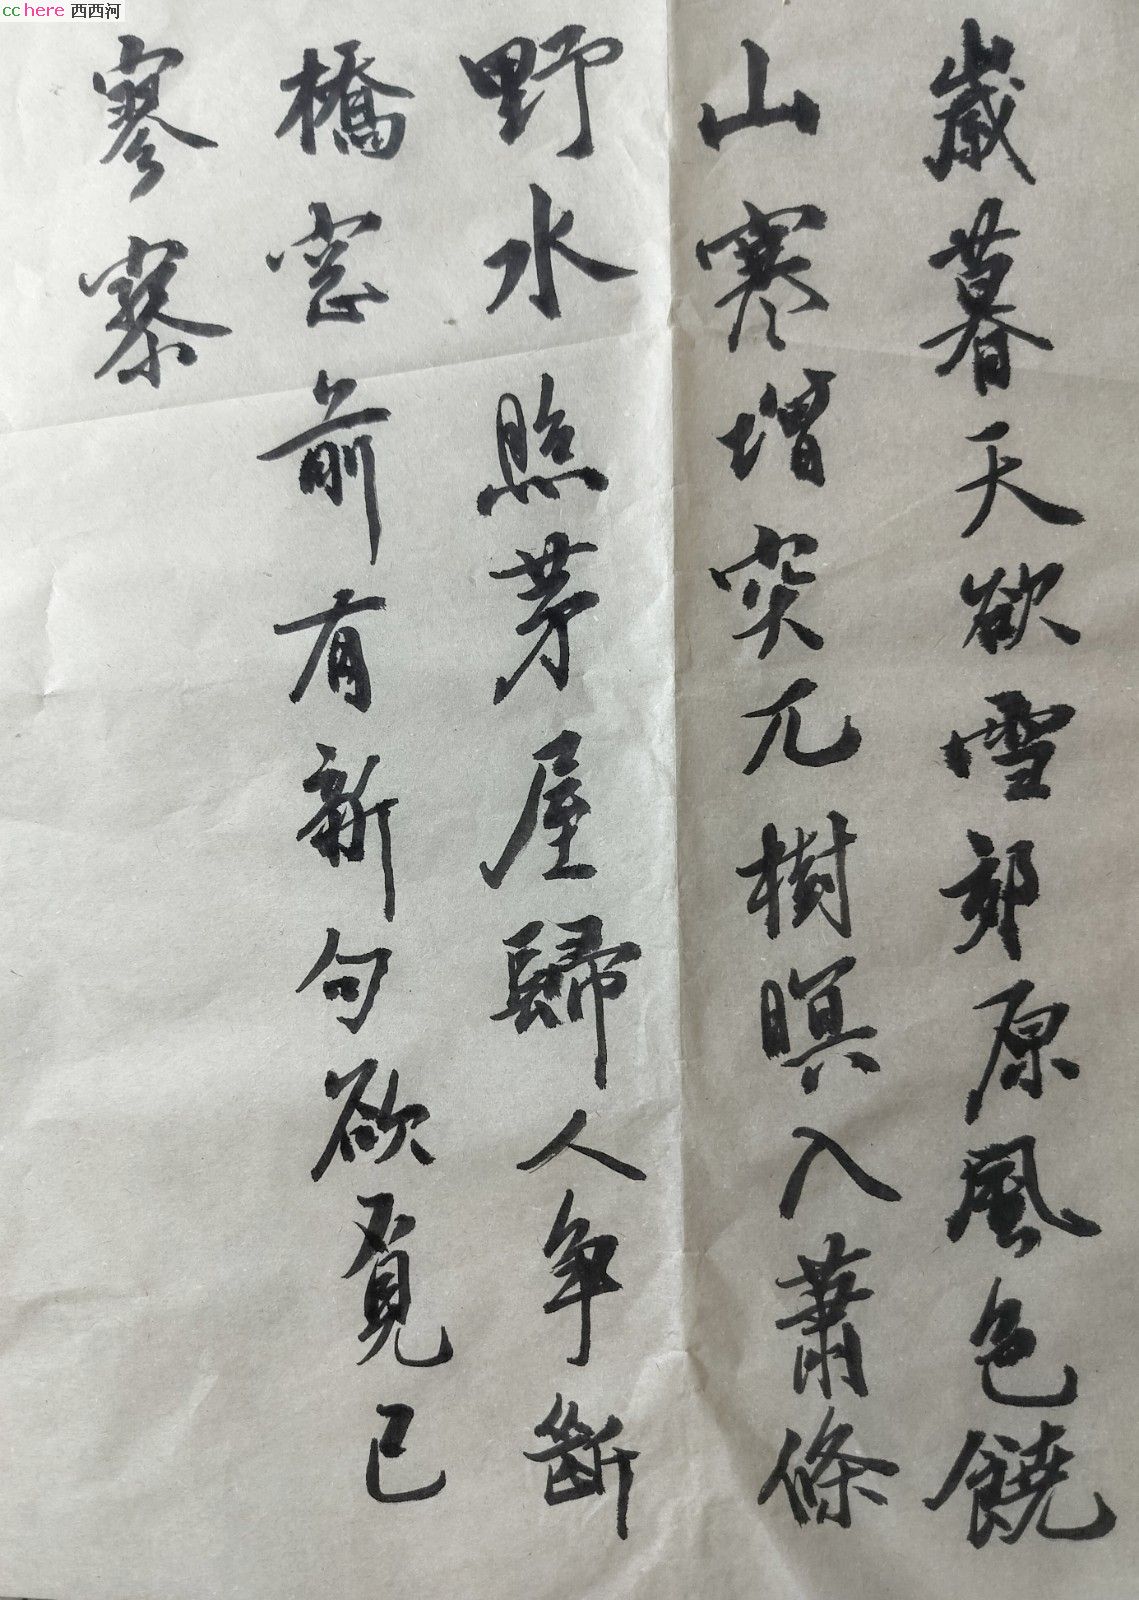 cchere 西西河
歲暮天欲雪郊原風色饒
山寒增突兀樹暝入蕭條
野水照茅屋歸人争斷
橋窓前有新句欲覓已
寥寥